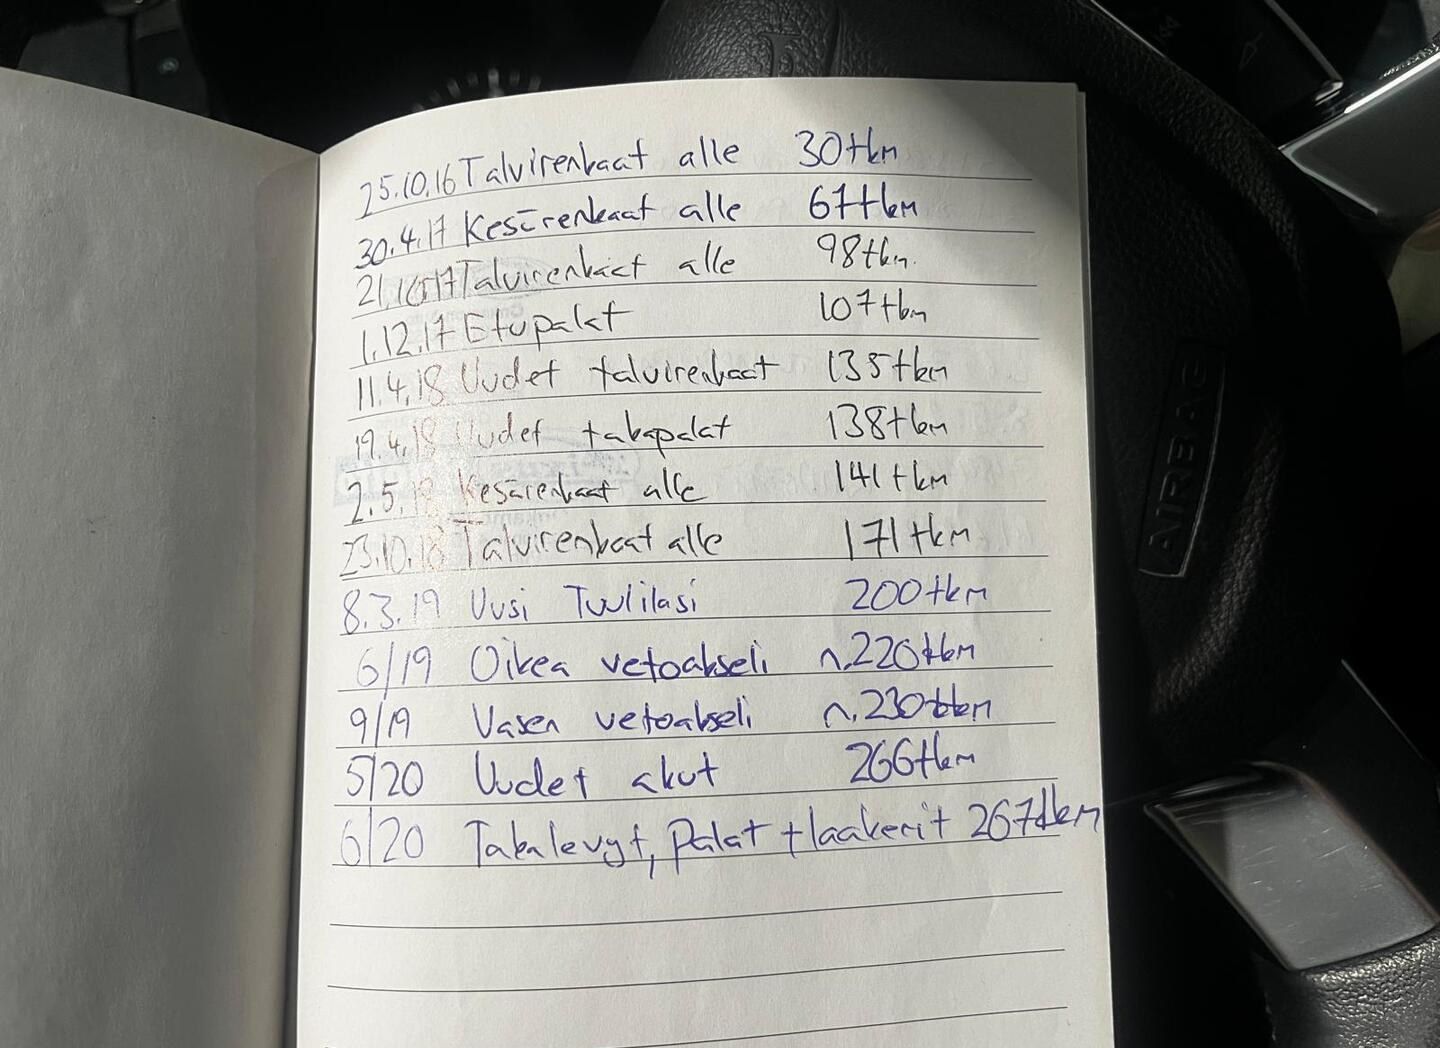 25.10.16 Talvirenkaat alle 30tkm
30.4.17 Kesärenkaat alle 67tkm
21.10.17 Talvirenkaat alle 98tkm.
1.12.17 Etupalat 107tkm
11.4.18 Uudet talvirenkaat 135tkm
19.4.18 Uudet takapalat 138tkm
2.5.18 Kesärenkaat alle 141tkm
23.10.18 Talvirenkaat alle 171tkm
8.3.19 Uusi Tuulilasi 200tkm
6/19 Oikea vetoakseli n.220tkm
9/19 Vasen vetoakseli n.230tkm
5/20 Uudet akut 266tkm
6/20 Takalevyt, palat + laakerit 267tkm
AIRBAG